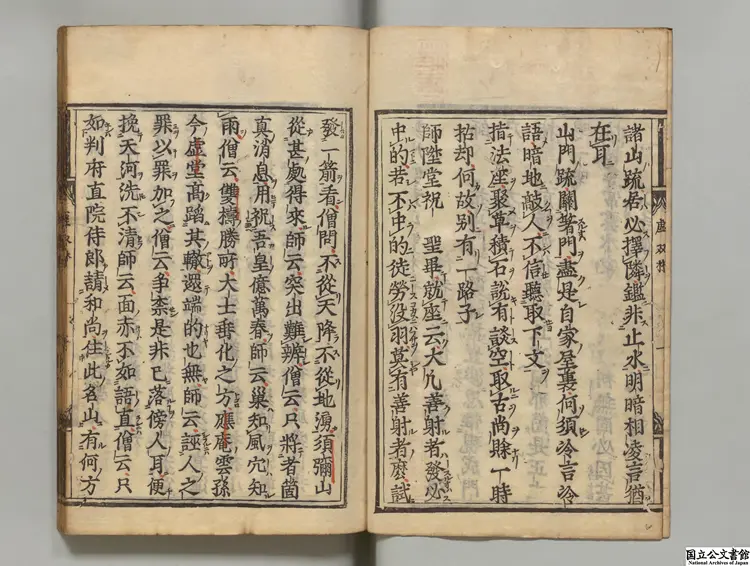 諸山疏若必擇隣鑑非止水明暗相凌言猶
在耳
山門疏關著門盡是自家屋裏何須冷言冷
語暗地敵人不信聽取下文
指法座聚草積石説有談空取古尚賖一時
拈却何故別有一路子
師陞堂祝 聖畢就座云大凢善射者發必
中的若不中的徒勞役羽莫有善射者麽試
發一箭看僧問不從天降不從地湧須彌山
從甚處得來師云突出難辨僧云只將者箇
真消息用祝吾皇億萬春師云巢知風穴知
雨僧云雙擣勝呀大士垂化之方應庵雲孫
今虚堂髙蹈其轍還端的也無師云誣人之
罪以罪加之僧云爭柰是非已落傍人耳便
挽天河洗不清師云面赤不如語直僧云只
如判府直院侍郎請和尚住此名山有何方
虚双林
国立公文書館
National Archives of Japan